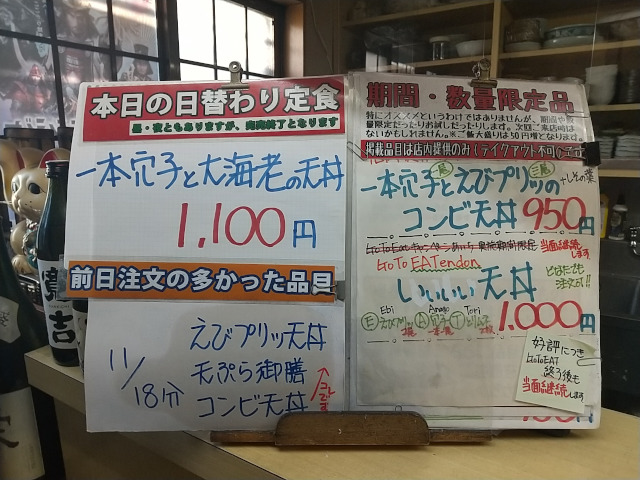 本日の日替わり定食
昼・夜ともありますが、完売終了となります
一本穴子と大海老の天丼
1,100円
前日注文の多かった品目
11/18分
えびプリッ天丼
天ぷら御膳
コンビ天丼
コレです
期間・数量限定品
特にオススメというわけではありませんが、期間や数
量限定だったりお試しだったりします。次回ご来店時は
ないかもしれません。※ご飯大盛りは50円増となります。
掲載品目は店内提供のみ(テイクアウト不可)です
一本穴子とえびプリッの
二尾
+しその葉
コンビ天丼 950円
当面継続します
GoTo EATendon
どなたでも
注文可!!
いいいい天丼
1.000円
Ebi
Anago
Tori
E えびプリッ
A 穴子
T とり
好評につき
GoToEAT
終了後も
当面継続します
寳吉